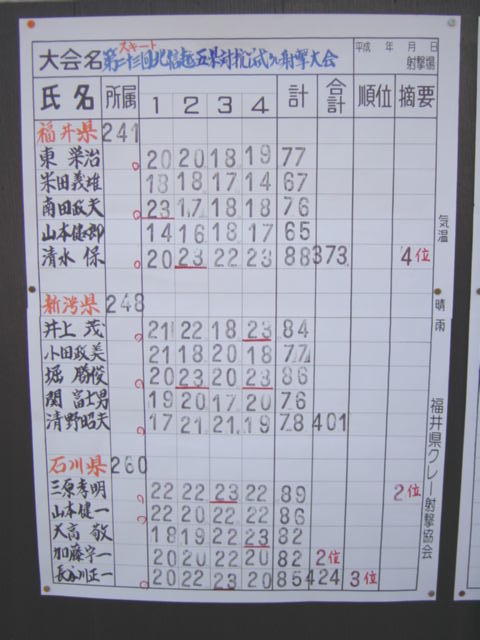 大会名 第二十三回北信越五県対抗公式クレー射撃大会 平成 年 月 日
スキート
射撃場
氏名 所属 1 2 3 4 計 合計 順位 摘要
福井県 241
東 栄治 20 20 18 19 77
米田義雄 18 18 17 14 67
南田政夫 23 17 18 18 76
山本健郷 14 16 18 17 65
清水 保 20 23 22 23 88 373 4位
新潟県 248
井上 茂 21 22 18 23 84
小田政美 21 18 20 18 77
堀 勝俊 20 23 20 23 86
関 富士男 19 20 17 20 76
清野昭夫 17 21 21 19 78 401
石川県 260
三原孝明 22 22 23 22 89 2位
山本健一 22 20 22 22 86
大高 敬 18 19 22 23 82
加藤宇一 20 20 22 20 82 2位
長谷川正一 20 22 23 20 85 424 3位
気温
晴雨
福井県クレー射撃協会